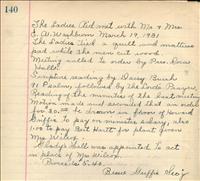 140
The Ladies Aid met with Mr & Mrs
E. A. Washburn March 19, 1931
The Ladies tied a quilt and mattress
pad while the men cut wood.
Meeting called to order by Pres. Cora
Hall.
Scripture reading by Daisy Buck
91 Psalm followed by the Lords Prayer
Reading of the minutes of the last meeting
Motion made and seconded that an order
for 30.00 be drawn in favor of
Griffin to pay on ministers salary, also
1.00 to pay Bert Hutt for plant given
Mrs Wilson.
Gladys Hall was appointed to act
in place of Mrs Wilson.
Proceeds 5.40.
Griffin Sec'y